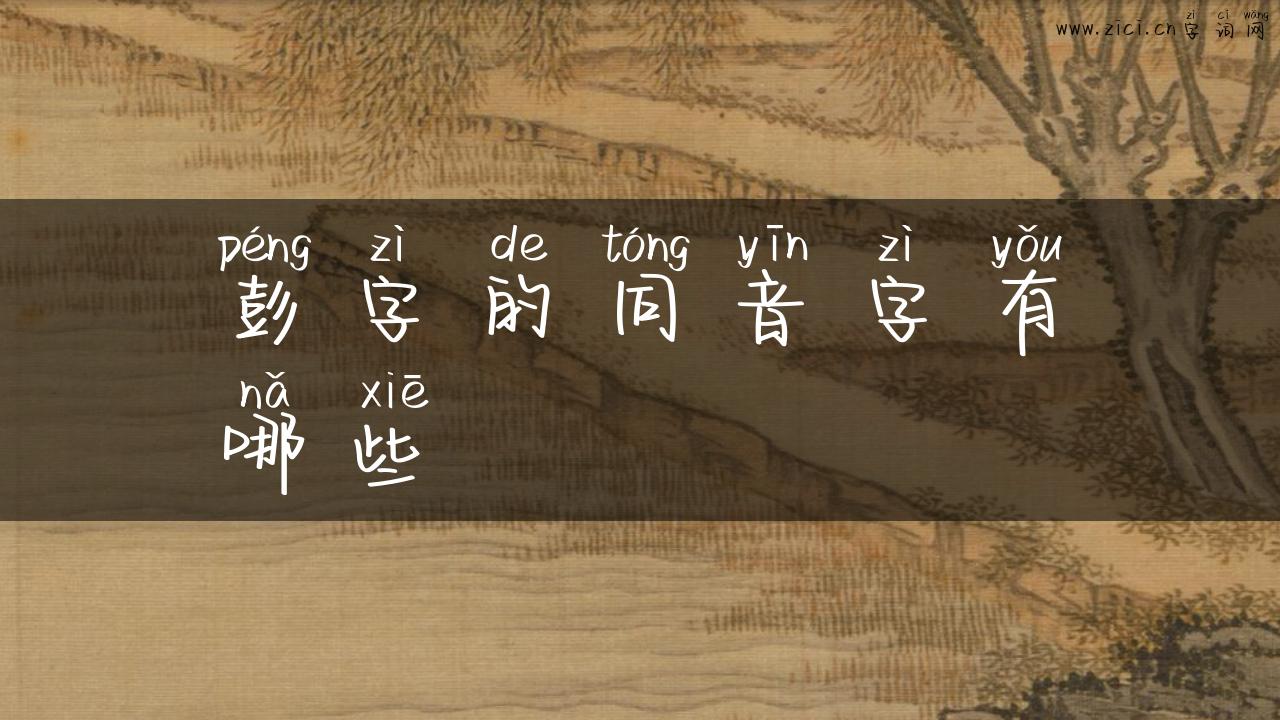 zì cí wǎng
www.zici.cn字词网
péng zì de tóng yīn zì yǒu
彭字的同音字有
nǎ xiē
哪些